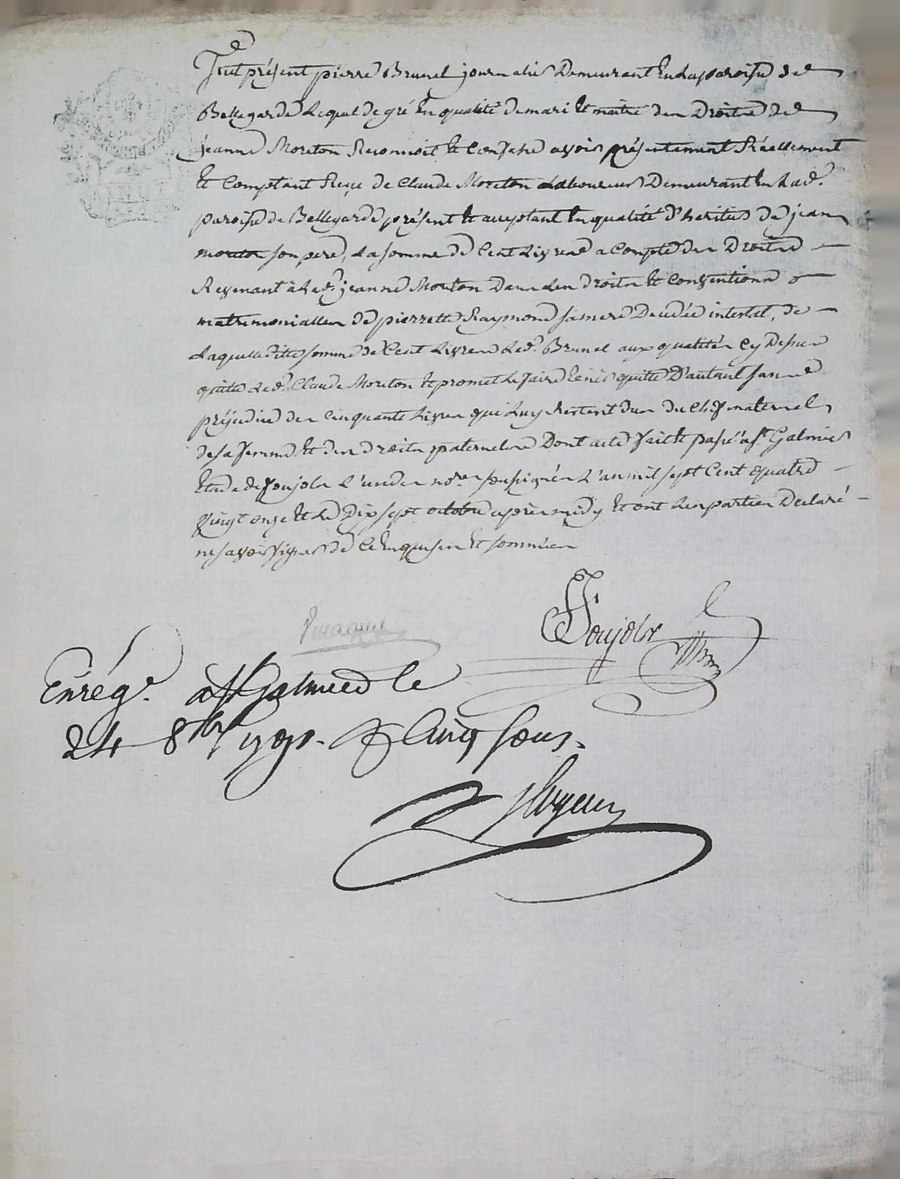 Fut présent pierre Brunel journalier Demeurant En La paroisse de
Bellegarde Lequel de gré En qualité de mari Et maitre des Droits de
jeanne Moreton Reconnoit Et Confesse avoir présentement Réellement
Et Comptant Reçu de Claude Moreton Laboureur Demeurant En Lad.
paroisse de Bellegarde présent Et acceptant En qualité d'héritier de jean
moreton son pere, La somme de Cent Livres a Compte des Droits
Revenant à Lad. jeanne Moreton Dans Les droits Et Conventions
matrimonialles de pierrette Raymond sa mere Décédée intestat, de
Laquelle ditte somme de Cent Livres Led. Brunel aux qualités Cy Dessus
quitte Led. Claude Moreton Et promet Le faire tenir quitte D'autant sans
préjudice des Cinquante Livres qui Luy Restent dus du Chef maternel
de sa femme Et des droits paternels Dont acte fait Et passé a St. Galmier
Etude de Poujols L'un des nores. soussignés L'an mil sept Cent quatre
Vingt onze Et Le Dix sept octobre après midy Et ont Les parties Declaré
ne savoir signer de Ce Enquises Et sommées
Poujols
Enrég. à St Galmier le
24 8bre 1791. R Cinq sous.